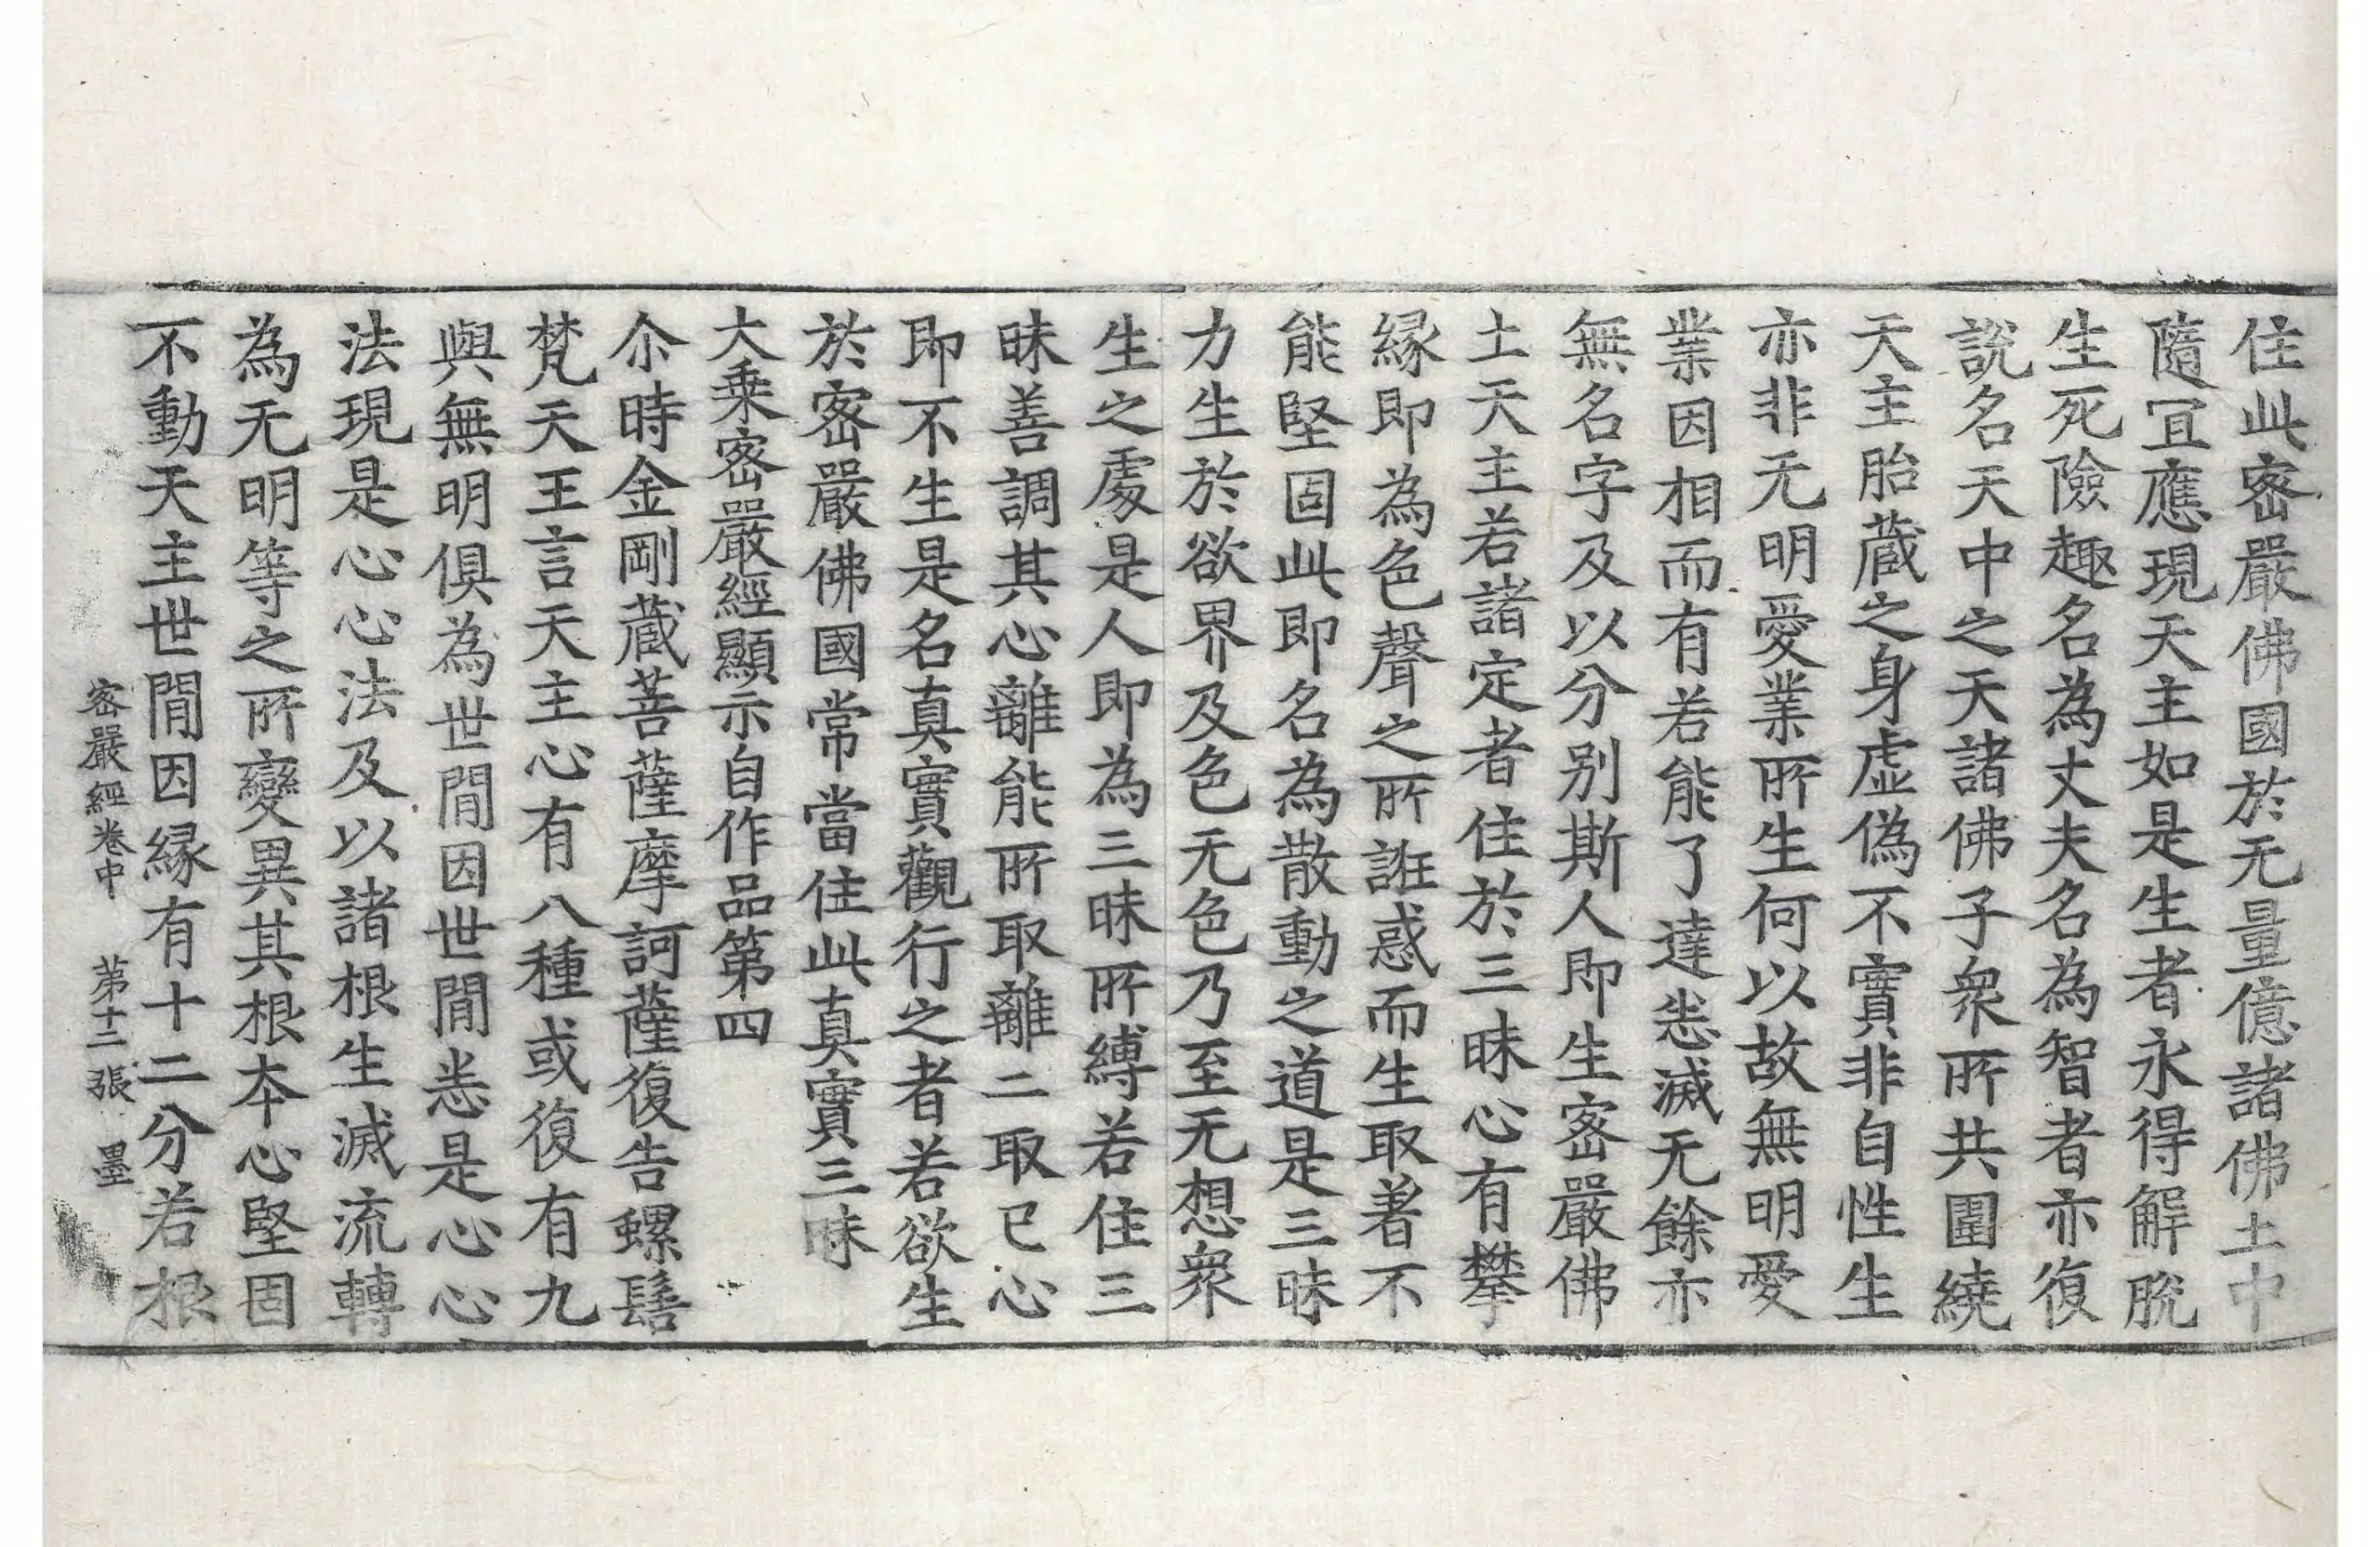 住此密嚴佛國於无量億諸佛土中
隨冝應現天主如是生者永得解脫
生死險趣名為丈夫名為智者亦復
說名天中之天諸佛子衆所共圍繞
天主胎蔵之身虚偽不實非自性生
亦非无明愛業所生何以故無明愛
業因相而有若能了達悉滅无餘亦
無名字及以分别斯人即生密嚴佛
土天主若諸定者住於三昧心有攀
縁即為色聲之所誑惑而生取著不
能堅固此即名為散動之道是三昧
力生於欲界及色无色乃至无想衆
生之處是人即為三昧所縛若住三
昧善調其心離能所取離二取已心
即不生是名真實觀行之者若欲生
於密嚴佛國常當住此真實三昧
大乗密嚴經顯示自作品第四
尒時金剛蔵菩薩摩訶薩復告螺髻
梵天王言天主心有八種或復有九
與無明俱為世間因世間悉是心心
法現是心心法及以諸根生滅流轉
為无明等之所變異其根本心堅固
不動天主世間因縁有十二分若根
密嚴經卷中 第十二張 墨